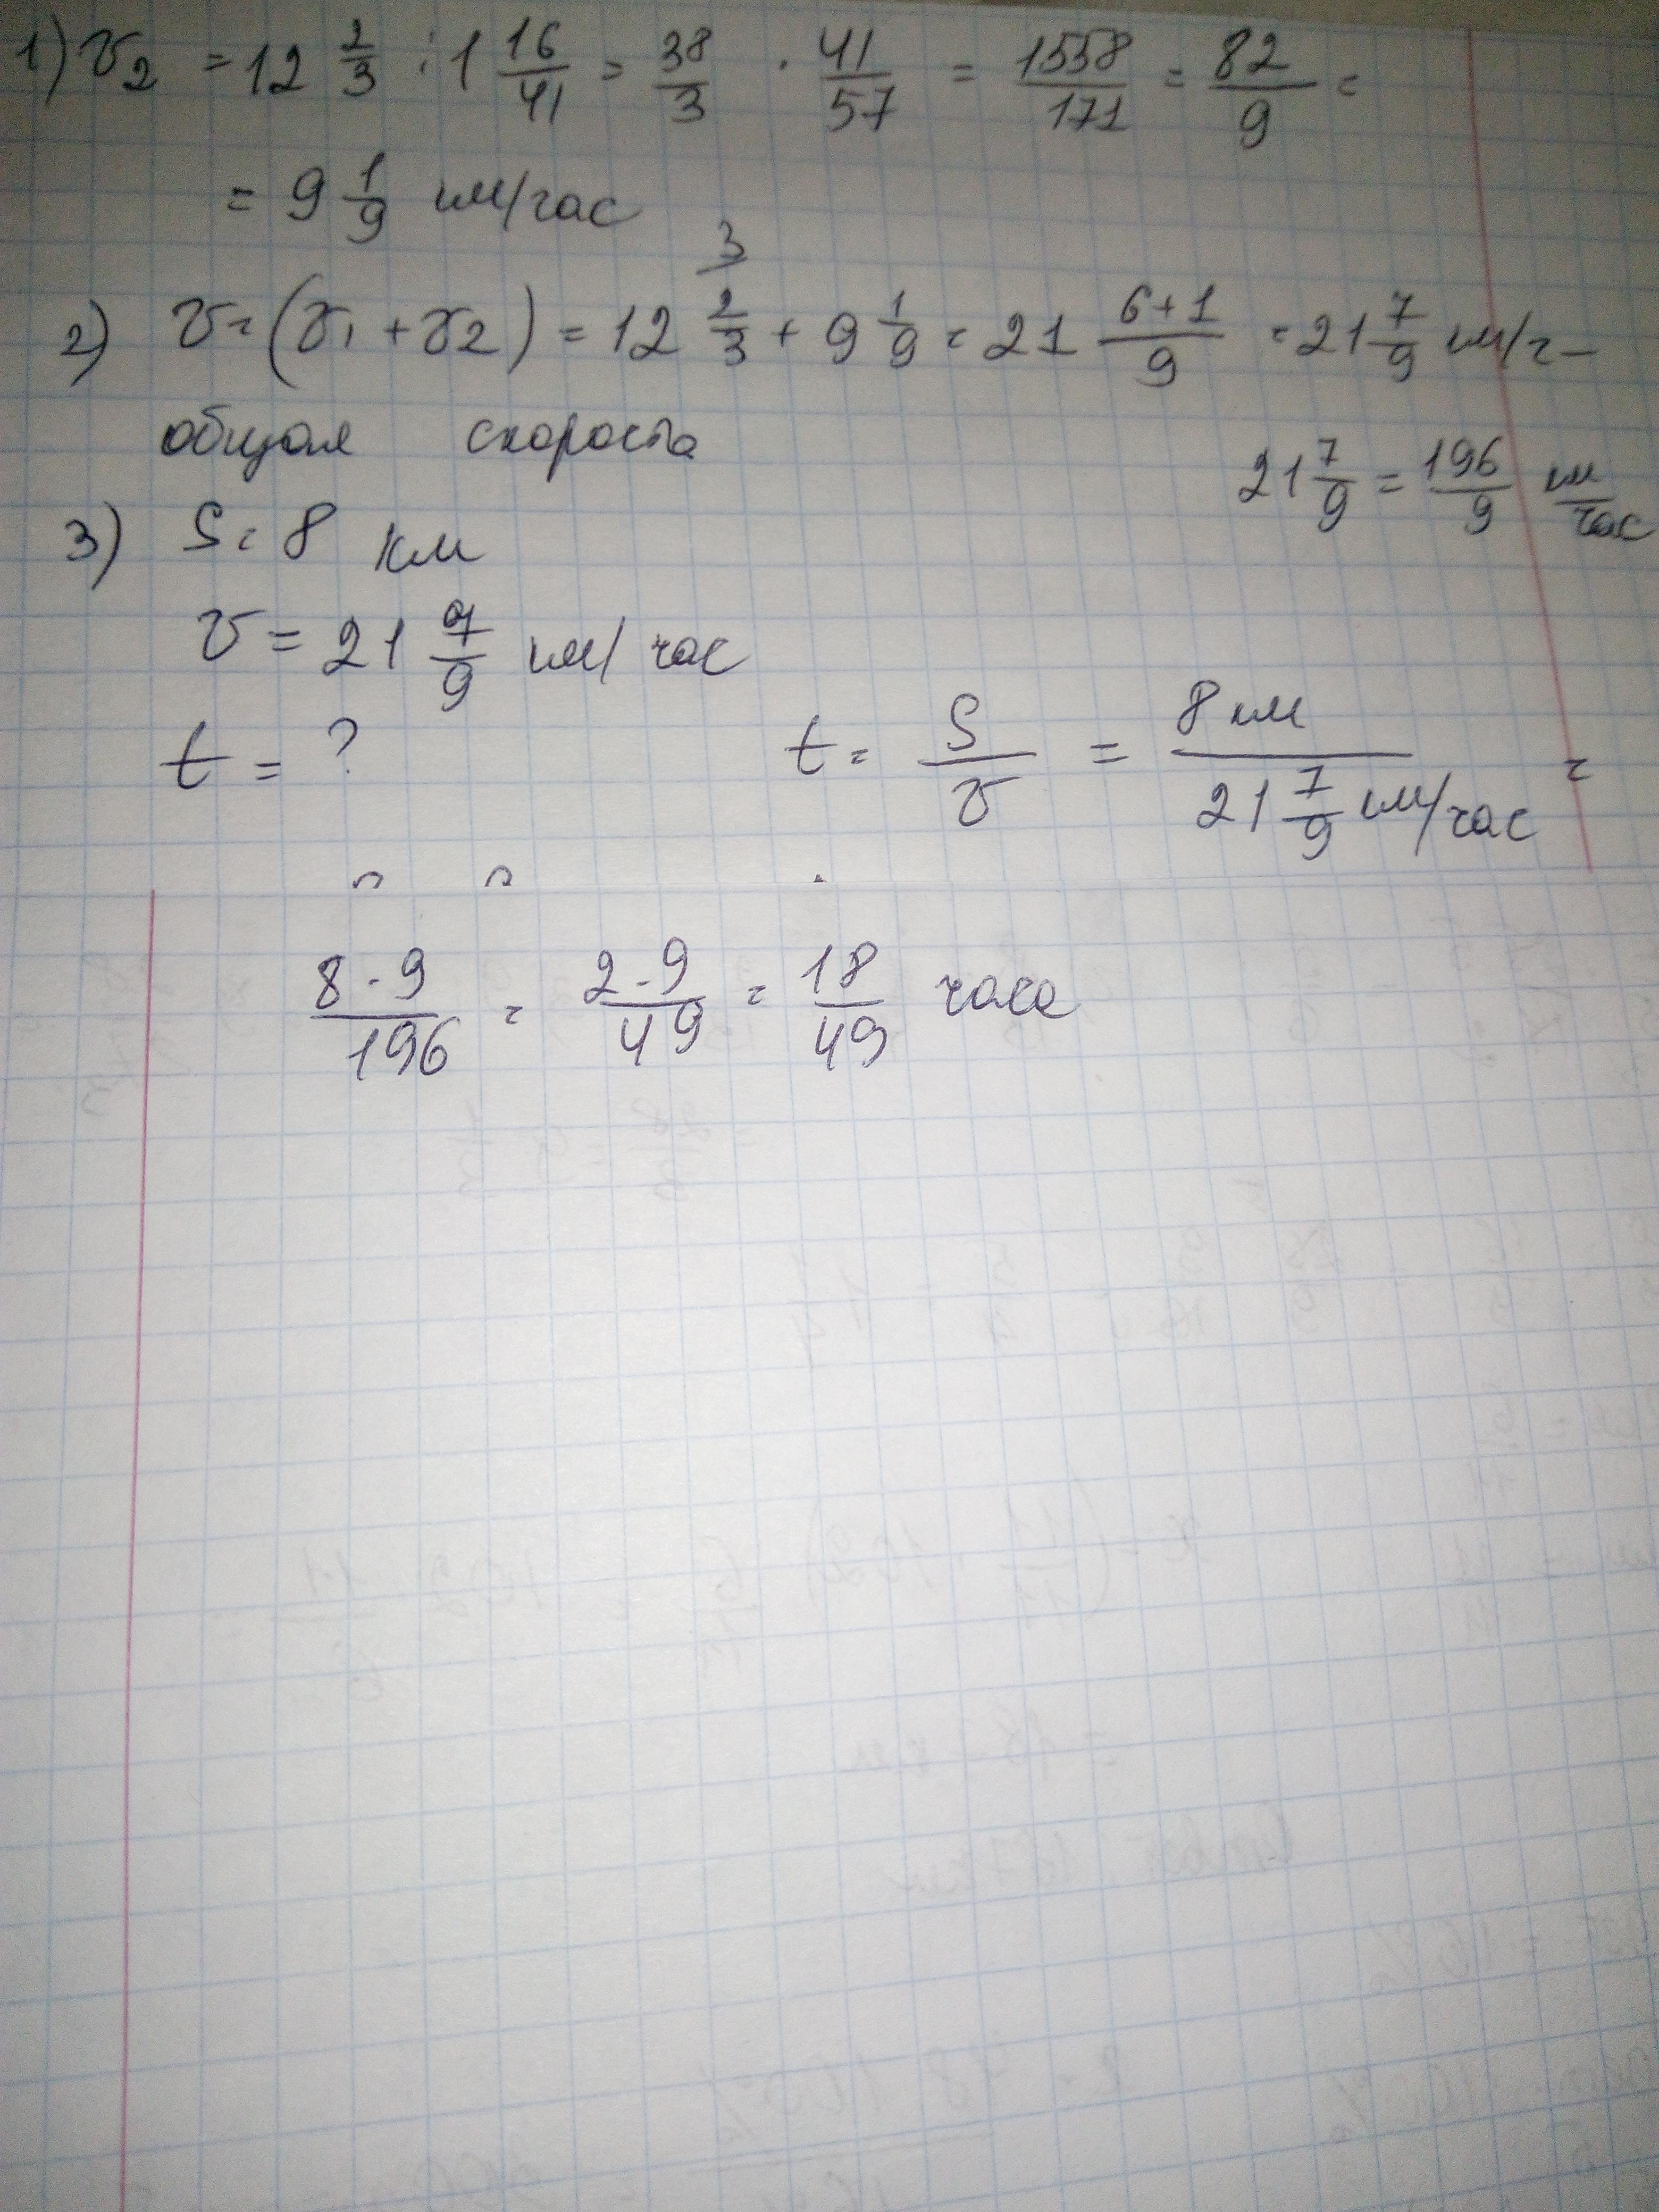 1) v₂ = 12 2/3 : 1 16/41 = 38/3 · 41/57 = 1558/171 = 82/9 =
= 9 1/9 км/час
2) v = (v₁ + v₂) = 12 2/3 + 9 1/9 = 21 (6+1)/9 = 21 7/9 км/ч –
3
общая скорость
21 7/9 = 196/9 км/час
3) S = 8 км
v = 21 7/9 км/час
t = ?
t = S/v = 8 км / 21 7/9 км/час =
8·9/196 = 2·9/49 = 18/49 часа